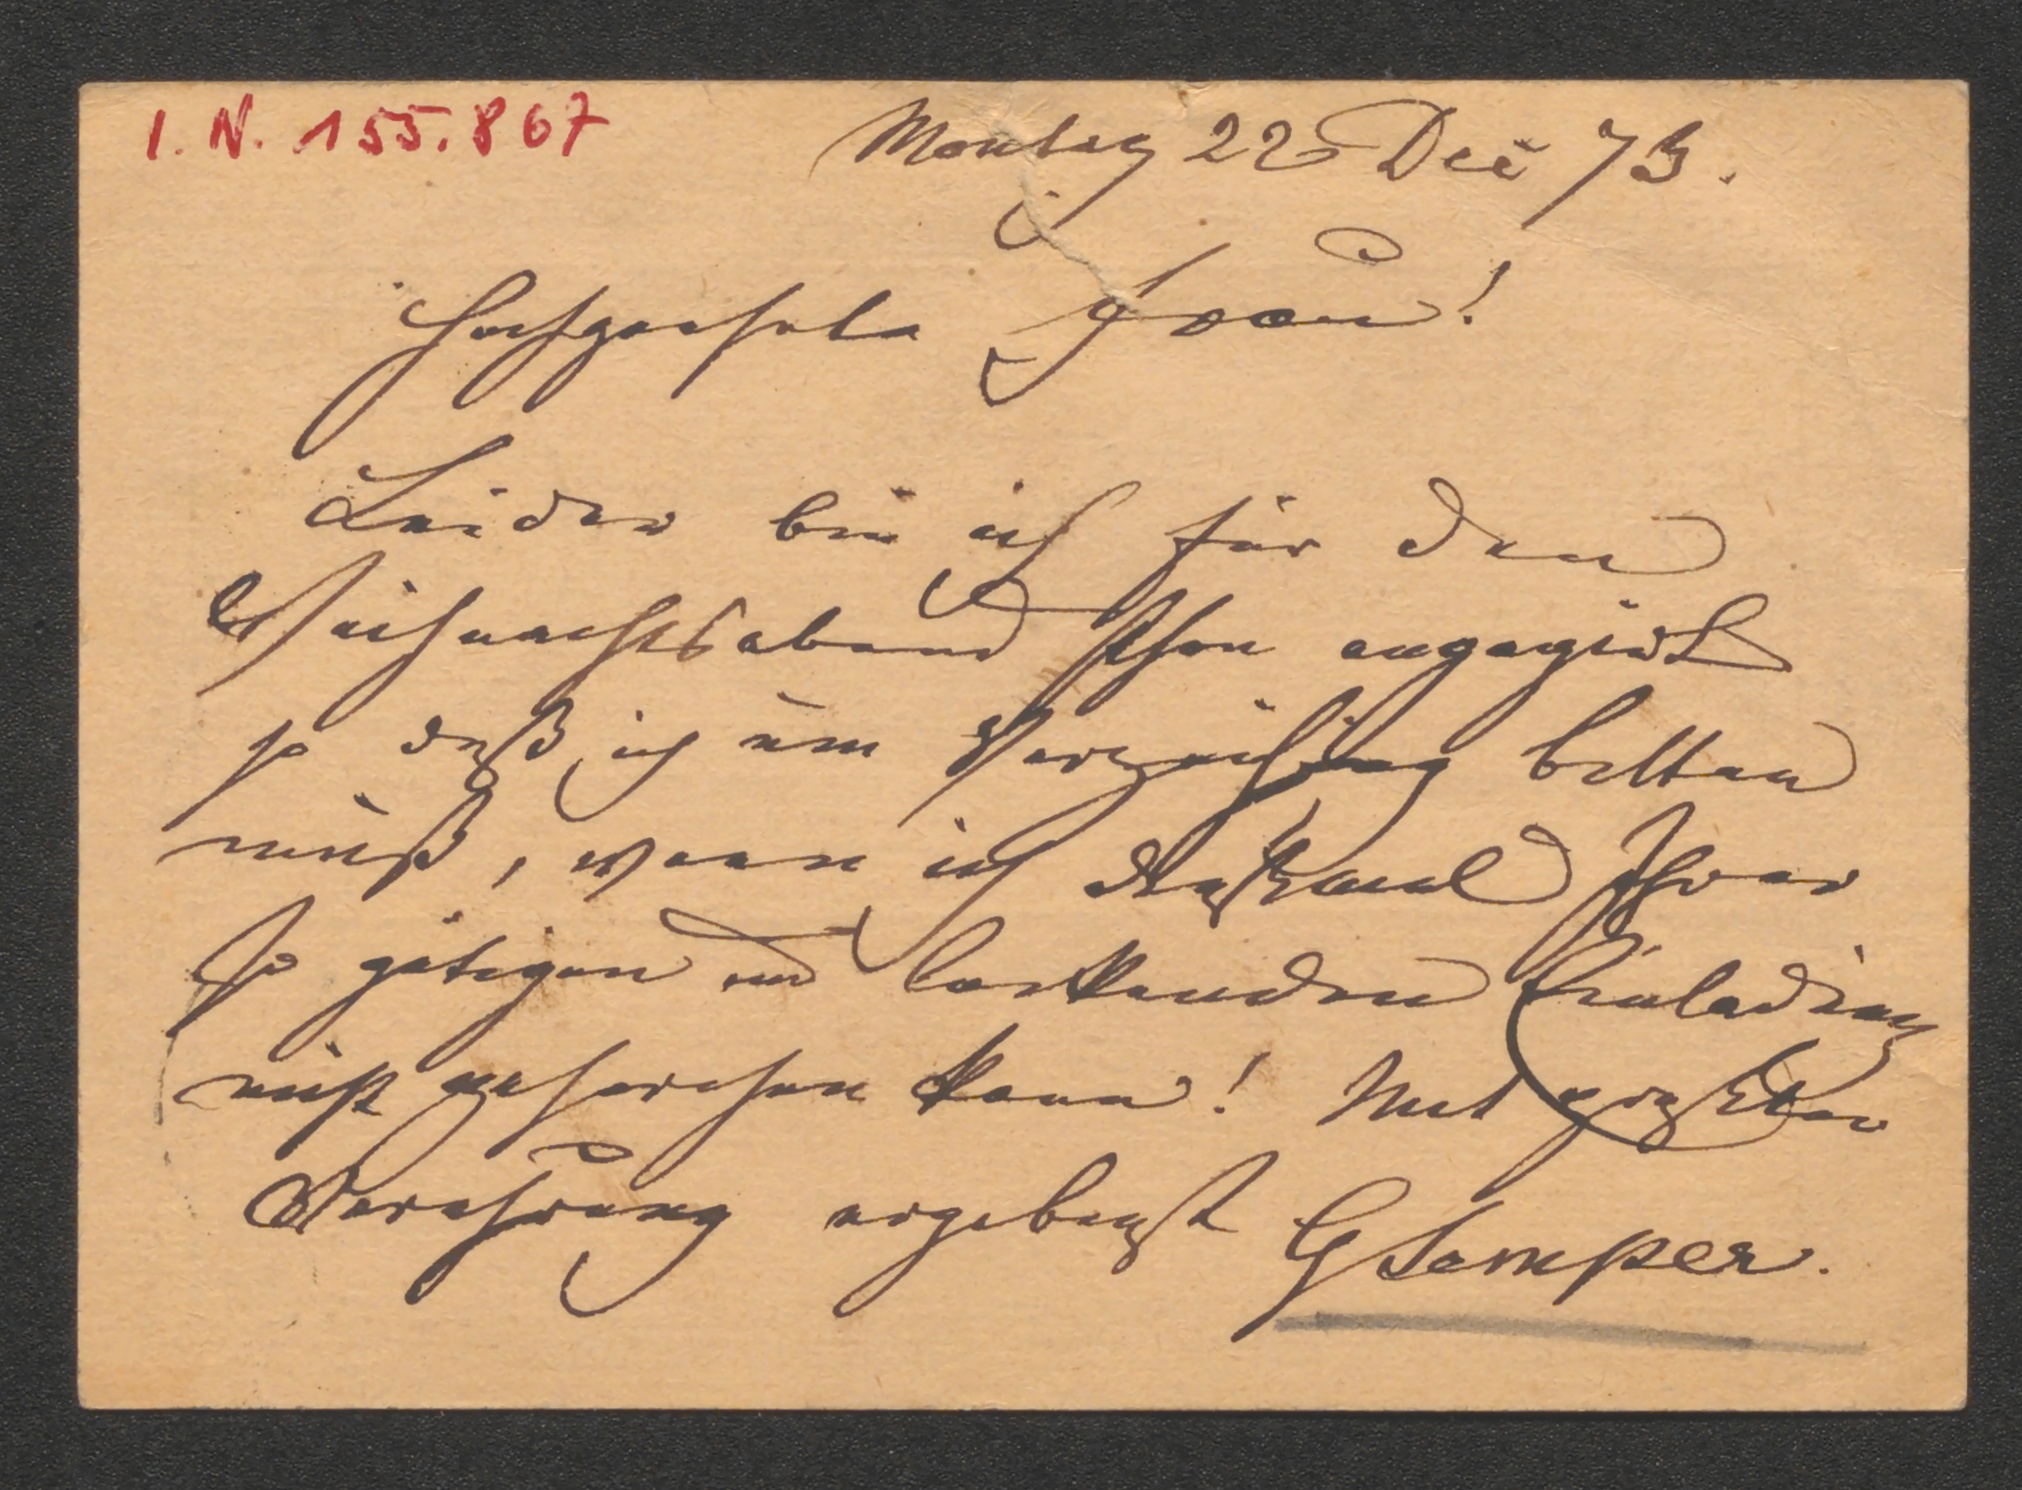 I. N. 155.867
Montag 22 Dec 73.
Hochgeehrte Frau!
Leider bin ich für den
Weihnachtsabend schon engagirt
so daß ich um Verzeihung bitten
muß, wenn ich dießmal Ihrer
so gütigen und lockenden Einladung
nicht gehorchen kann! Mit größter
Verehrung ergebenst GSemper.